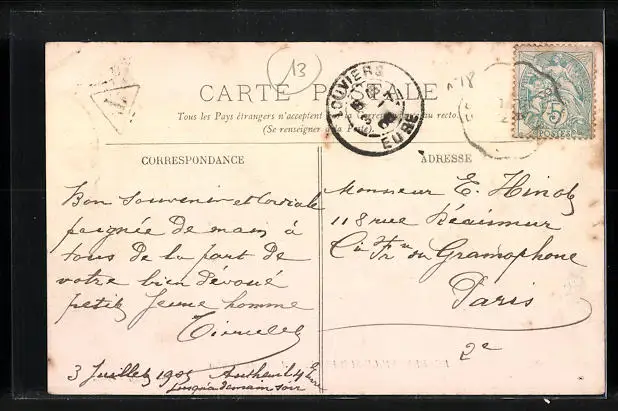 13
CARTE POSTALE
Tous les Pays étrangers n'acceptent pas la Correspondance au recto.
(Se renseigner à la Poste).
LOUVIERS
EURE
5
POSTES
T
CORRESPONDANCE
Bon souvenir et Cordiale
poignée de main à
tous de la part de
votre bien dévoué
petit jeune homme
3 Juillet 1905 Autheuil
jusqu'à demain soir
ADRESSE
Monsieur E. Hinot
118 rue Réaumur
Cie Fse du Gramophone
Paris
2e